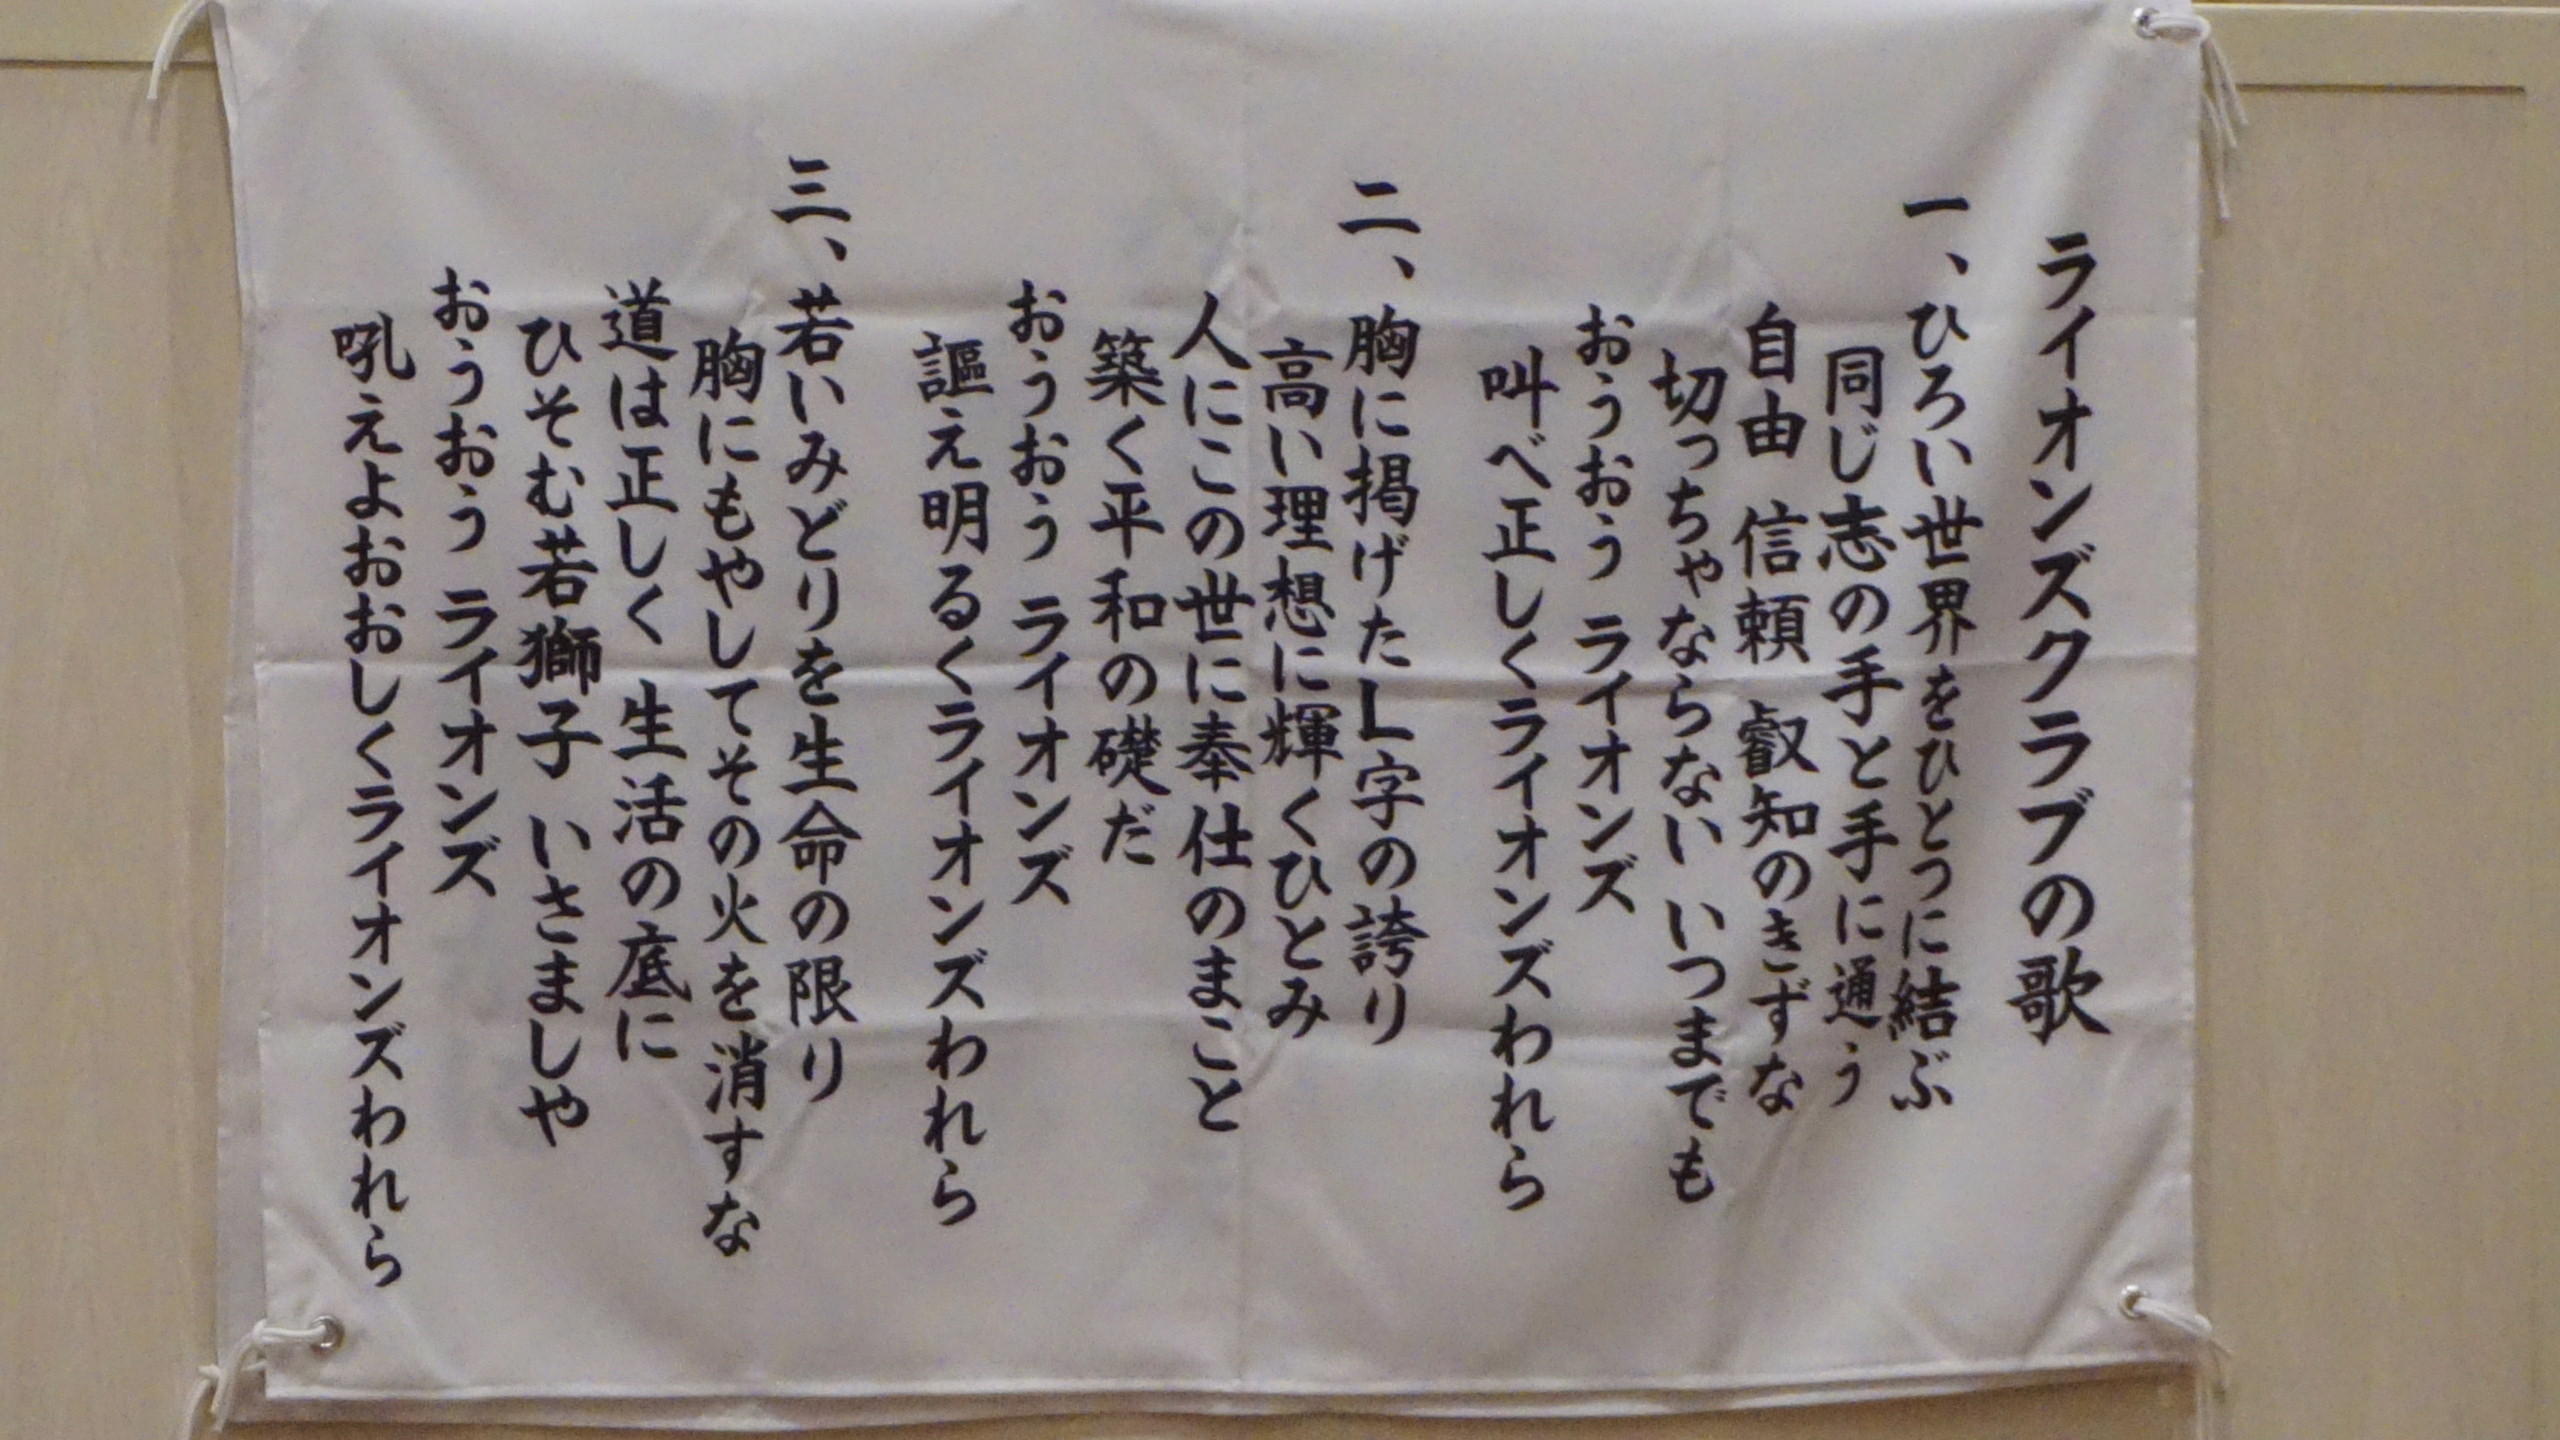 ライオンズクラブの歌
一、ひろい世界をひとつに結ぶ
同じ志の手と手に通う
自由 信頼 叡知のきずな
切っちゃならない いつまでも
おうおう ライオンズ
叫べ正しくライオンズわれら
二、胸に掲げたL字の誇り
高い理想に輝くひとみ
人にこの世に奉仕のまこと
築く平和の礎だ
おうおう ライオンズ
謳え明るくライオンズわれら
三、若いみどりを生命の限り
胸にもやしてその火を消すな
道は正しく 生活の底に
ひそむ若獅子 いさましや
おうおう ライオンズ
吼えよおおしくライオンズわれら